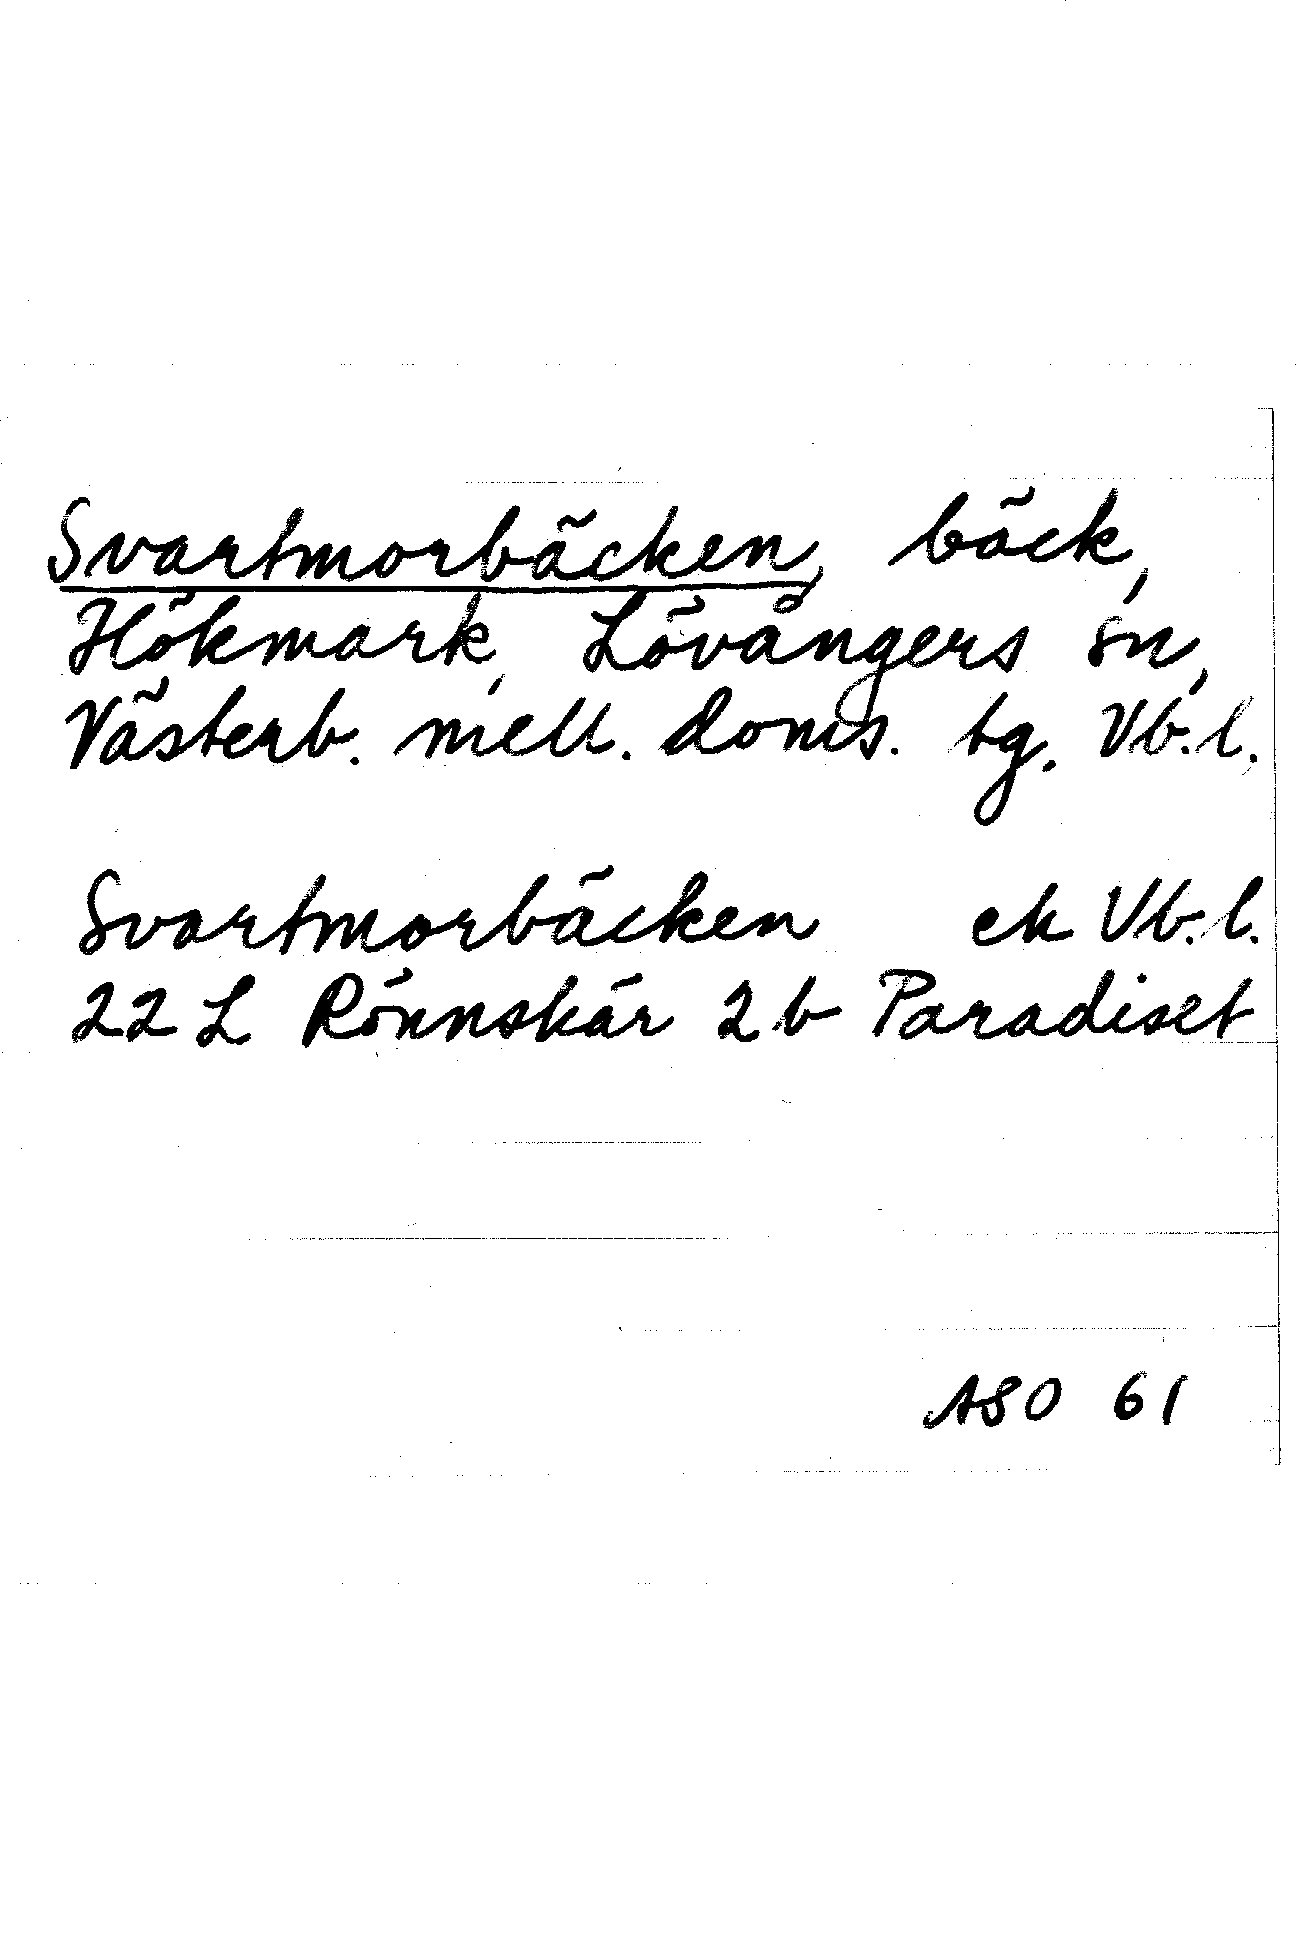 Svartmorbäcken, bäck,
Hökmark, Lövångers sn,
Västerb. mell. doms. tg. Vb. l.
Svartmorbäcken ek Vb. l.
22 L Rönnskär 2 b Paradiset
ASO 61